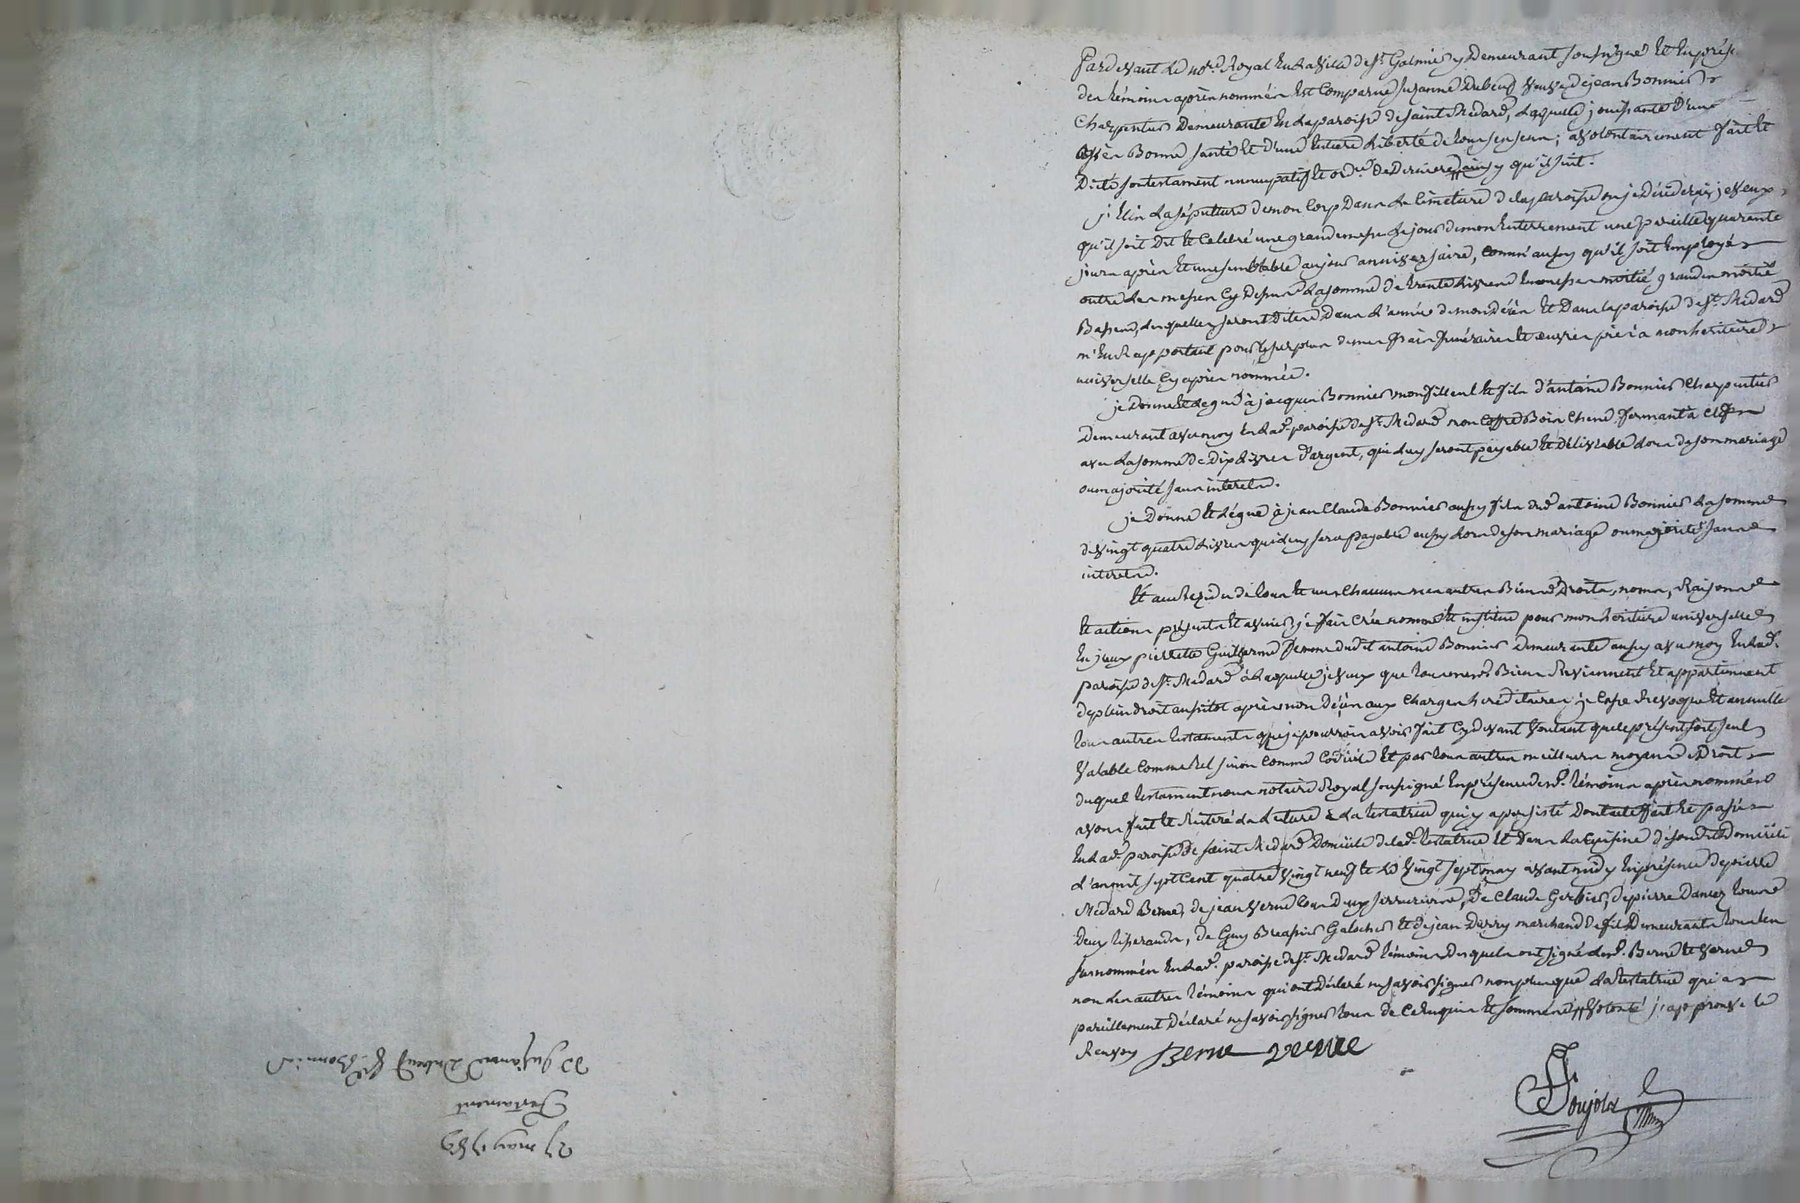 Pardevant le no.re Royal en la ville de St. Galmier y demeurant soussigné et en prése
des témoins après nommés est comparue Suzanne Dubeuf veuve de jean Bonnier
Charpentier demeurante en la paroisse de saint Médard, laquelle jouissante d'une
assés Bonne santé et d'une entiere liberté de tous ses sens; a volontairement fait et
Dicté son testament nuncupatif et ord.re de derniere // ainsy qu'il suit.
j'Elis la sépulture de mon Corp dans le Cimetiere de la paroisse ou je décéderay, je veux
qu'il soit dit et Celebré une grande messe le jour de mon enterrement une pareille quarante
jours après et une semblable au jour anniversaire, comm' aussy qu'il soit Employé
outre les messes Cy dessus la somme de trente livres en messes moitié grandes moitié
Basses, lesquelles seront dites dans l'année de mon décès et dans la paroisse de St. Médard
m'En Rapportant pour le surplus de mes frais funéraires et œuvres pies à mon heritiere
universelle Cy après nommée.
je donne et legue à jacques Bonnier mon filleul et fils d'antoine Bonnier Charpentier
demeurant avec moy en lad. paroisse de St. Médard mon Coffre Bois Chene fermant à Clef
avec la somme de dix livres d'argent, qui luy seront payable et délivrable lors de son mariage
ou majorité sans interets.
je Donne et légue à jean Claude Bonnier aussy fils dud. antoine Bonnier la somme
de vingt quatre livres qui luy sera payable aussy lors de son mariage ou majorité sans
interets.
Et au Rezidu de tous et uns Chacuns mes autres Biens Droits, noms, Raisons
et actions présents et avenir, je fais Crée nomme et institue pour mon héritiere universelle
pierrette Guillerme femme dudit antoine Bonnier demeurante aussy avec moy en lad.
paroisse de St. Medard à laquelle je veux que tous mesd. Biens Reviennent et appartiennent
de plein droit aussitot après mon décès aux Charges hereditaires, je Casse Revoque et annulle
tous autres testaments que je pourrois avoir fait Cy devant voulant que le présent soit seul
valable Comme tel sinon comme Codicile et par tous autres meilleurs moyens de Droit
duquel testament nous notaire Royal soussigné en présence desd. témoins après nommés
avons fait et Réitéré la lecture à la testatrice qui y a persisté dont acte fait et passé
en lad. paroisse de saint Médard Domicile de lad. testatrice et dans la Cuisine de son dit domicile
L'an mil sept Cent quatre vingt neuf et le vingt sept may avant midy En présence de pierre
Médard Berne, de jean Verne tous deux serruriers, de Claude Gerbier, de pierre tous
deux tisserands, de Guy Galocher et de jean marchand de fil Demeurants tous les
surnommés en lad. paroisse de St. Medard témoins desquels ont signé lesd. Berne et Verne
non les autres témoins qui ont déclaré ne savoir signer non plus que la testatrice qui a
pareillement déclaré ne savoir signer tous de Ce Enquis et sommés // volonté j'approuve le
Renvoy Berne verne
27 may 1789
Testament
De Suzanne Dubeuf Ve Bonnier